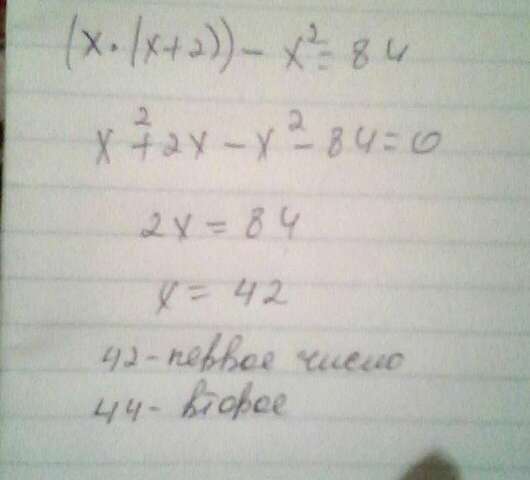 (x·(x+2))-x²=84
x²+2x-x²-84=0
2x=84
x=42
42-первое число
44-второе